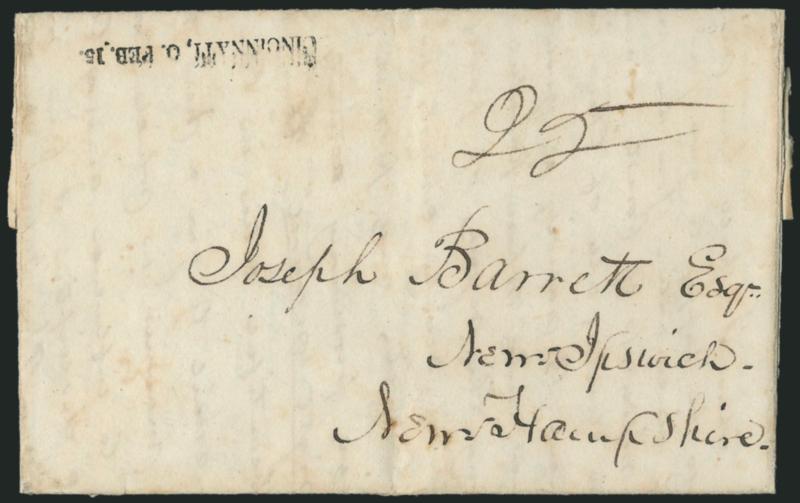 CINCINNATI, O. FEB. 15.
25
Joseph Barrett Esqr.
New Ipswich.
New Hampshire.